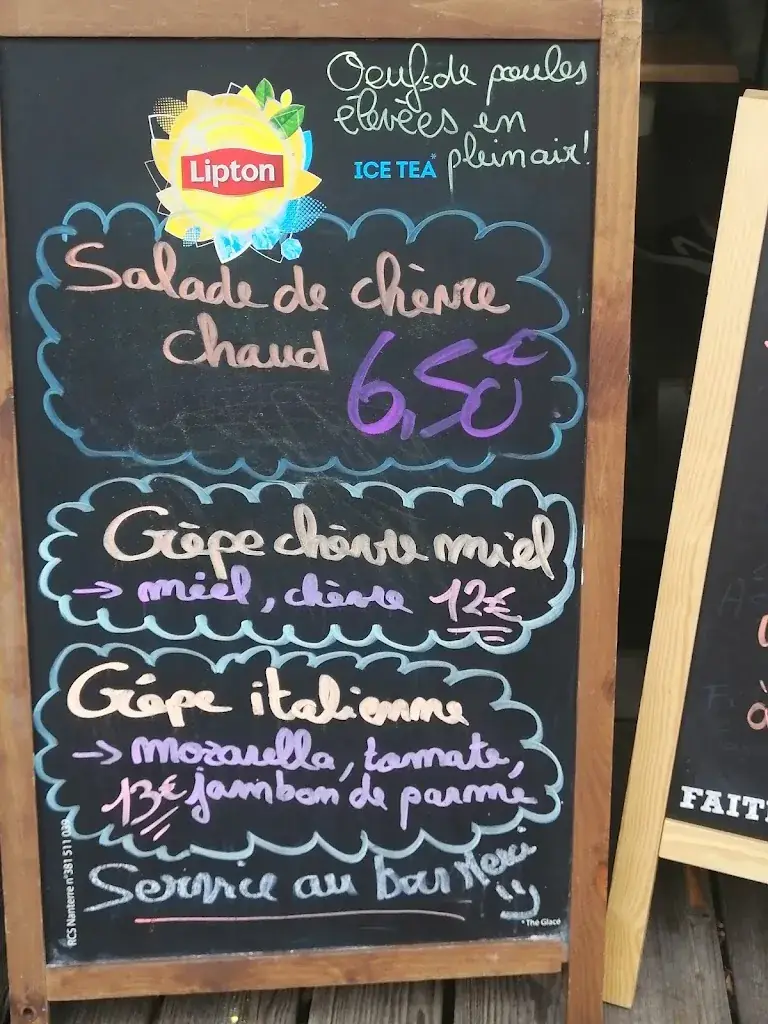 Oeufs de poules
élevées en
plein air!
Lipton
ICE TEA*
Salade de chèvre
chaud
6,50€
Crêpe chèvre miel
→ miel, chèvre 12€
Crêpe italienne
→ mozarella, tomate,
13€ jambon de parme
Service au bar Merci
* Thé Glacé
RCS Nanterre n°381 511 039
FAIT